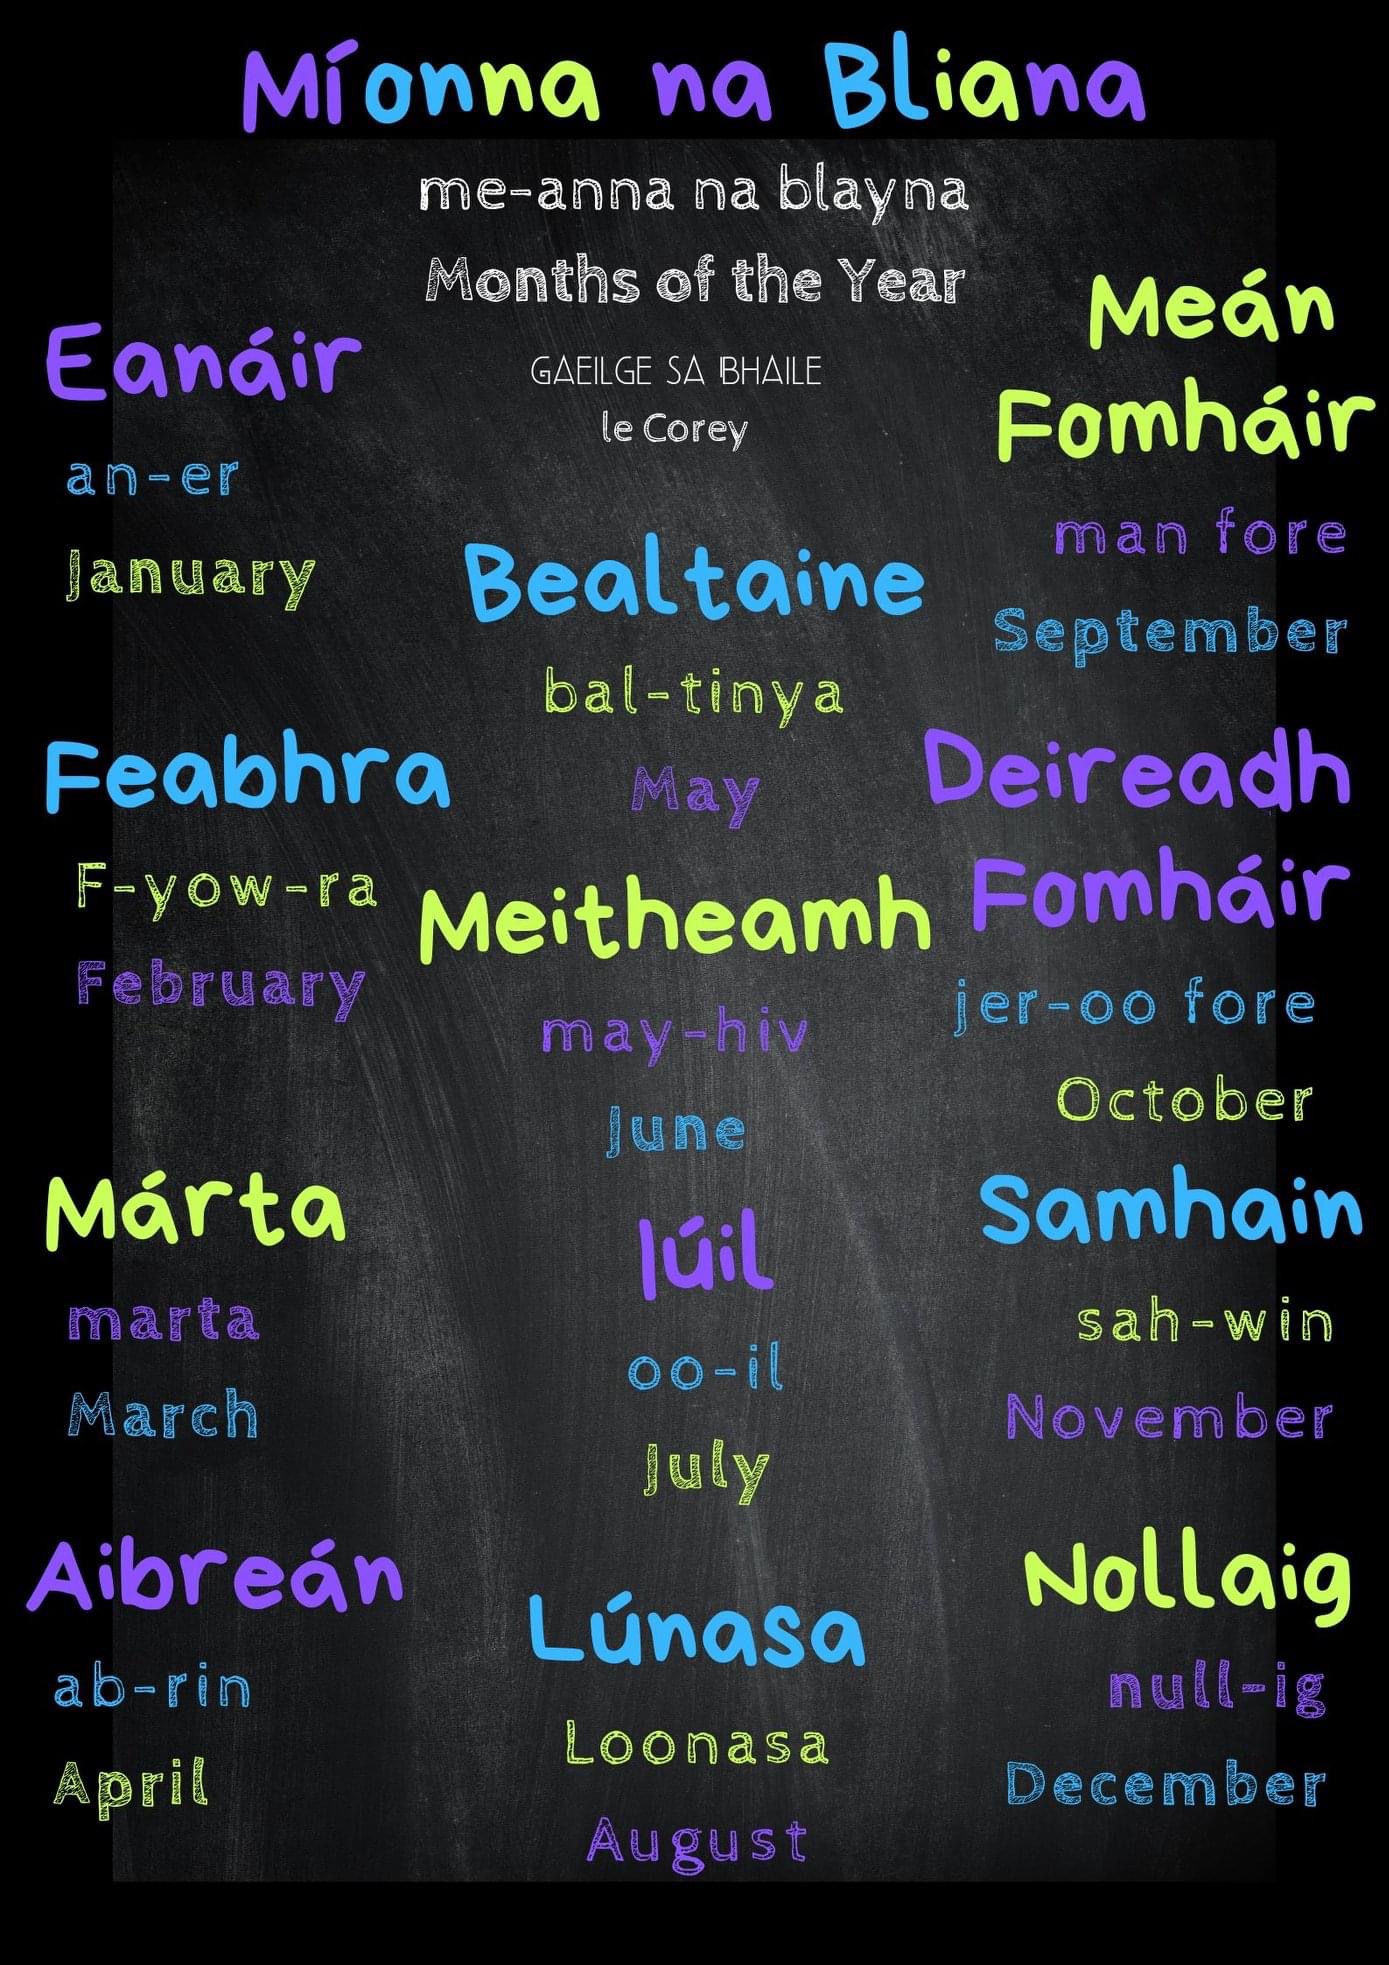 Míonna na Bliana
me-anna na blayna
Months of the Year
GAEILGE SA BHAILE
le Corey
Eanáir
an-er
January
Feabhra
F-yow-ra
February
Márta
marta
March
Aibreán
ab-rin
April
Bealtaine
bal-tinya
May
Meitheamh
may-hiv
June
Iúil
oo-il
July
Lúnasa
Loonasa
August
Meán
Fomháir
man fore
September
Deireadh
Fomháir
jer-oo fore
October
Samhain
sah-win
November
Nollaig
null-ig
December